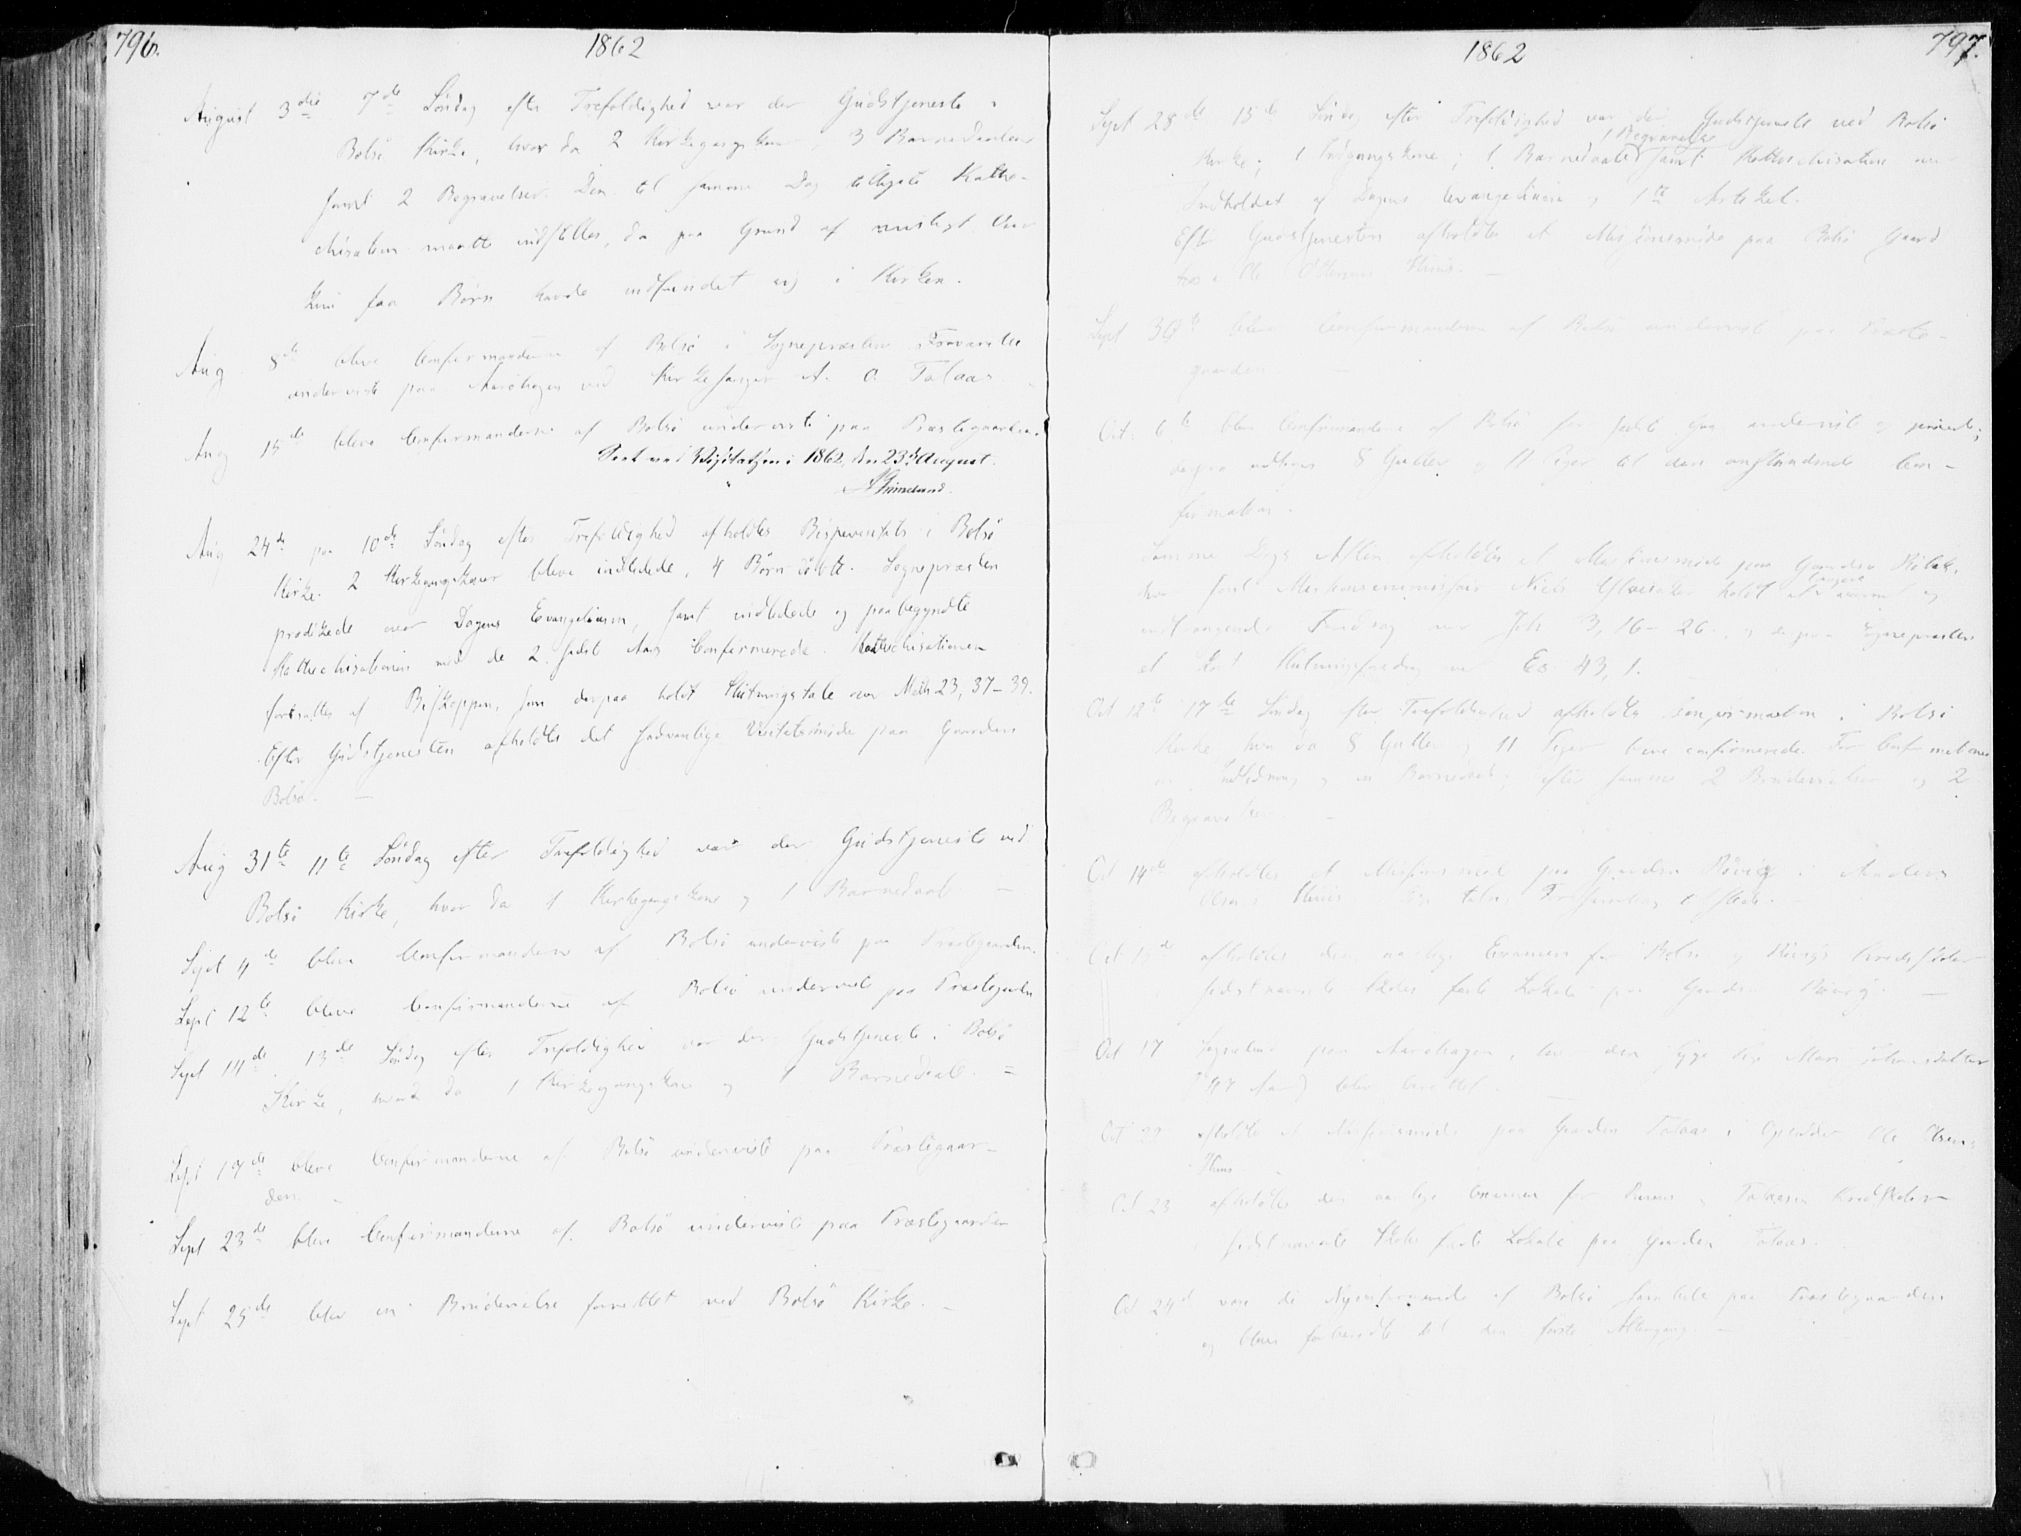 796.
1862
August 3die 7de Søndag efter Trefoldighed var der Gudstjeneste i
Bolsö Kirke, hvor da 2 Kirkegangskoner, 3 Barnedaab
samt 2 Begravelser. Den til samme Dag Kathe-
chisation maatte indstilles, da paa Grund af
kun faa Börn havde indfundet sig i Kirken.
Aug 8de bleve Confirmanderne af Bolsö i Sognepræstens Fraværelse
underviste paa Aaröhagen ved Kirkesanger A. O. Talaas
Aug 15de bleve Confirmanderne af Bolsö underviste paa Præstegaarden.
Seet ved Visitatsen i 1862, den 23de August.
Aug 24de paa 10de Søndag efter Trefoldighed afholdtes Bispevisitats i Bolsö
Kirke. 2 Kirkegangskoner bleve indledede, 4 Börn döbte. Sognepræsten
prædikede over Dagens Evangelium, samt indledede og paabegyndte
Kathechisationen med de 2 sidste Aars Confirmerede. Kathechisationen
fortsattes af Biskoppen, som derpaa holdt Slutningstale over Mth 23, 37-39.
Efter Gudstjenesten afholdtes det sædvanlige Visitatsmöde paa Gaarden
Bolsö. —
Aug 31te 11te Søndag efter Trefoldighed var der Gudstjeneste ved
Bolsö Kirke, hvor da 1 Kirkegangskone og 1 Barnedaab —
Sept 4de bleve Confirmanderne af Bolsö underviste paa Præstegaarden.
Sept 12te bleve Confirmanderne af Bolsö underviste paa Præstegaarden
Sept 14de 13de Søndag efter Trefoldighed var der Gudstjeneste i Bolsö
Kirke, hvor da 1 Kirkegangskone og 1 Barnedaab. —
Sept 19de bleve Confirmanderne af Bolsö underviste paa Præstegaar-
den. —
Sept 23de bleve Confirmanderne af Bolsö underviste paa Præstegaarden
Sept 25de blev en Brudevielse forrettet ved Bolsö Kirke. —
797.
1862
Sept 28de 15de Søndag efter Trefoldighed var der Gudstjeneste ved Bolsö
1 Begravelse
Kirke; 1 Indgangskone; 1 Barnedaab samt Kathechisation over
Indholdet af Dagens Evangelium og 1te Artikel.
Efter Gudstjenesten afholdtes et Missionsmöde paa Bolsö Gaard
hos Ole Huus. —
Sept 30te bleve Confirmanderne af Bolsö underviste paa Præste-
gaarden. —
Oct. 6te bleve Confirmanderne af Bolsö for sidste Gang underviste og prövede;
derpaa udtoges 8 Gutter og 11 Piger til den anstundende Con-
firmation.
Samme Dags Aften afholdtes et Missionsmöde paa Gaarden
hvor först Missionsemissair Niels holdt et længere varmt og
indtrængende Foredrag over Joh 3, 16-26., og derpaa Sognepræsten
et kort Slutningsforedrag over Es. 43, 1.
Oct 12te 17de Søndag efter Trefoldighed afholdtes Confirmation i Bolsö
Kirke, hvor da 8 Gutter og 11 Piger bleve confirmerede. Før Confirmationen
en Indledning og en Barnedaab; efter samme 2 Brudevielser og 2
Begravelser. —
Oct 14de afholdtes et Missionsmöde paa Gaarden Røvig i Anders
Olsens Huus.
Oct 15de afholdtes den aarlige Examen for Bolsö og Røvigs Kredsskoler
sidstnævnte Skoles faste Lokale paa Gaarden Røvig. —
Oct 17 Sognebud paa Aaröhagen, hvor den syge Pige Mari Johnsdatter
(47 Aar) blev berettet.
Oct 22 afholdtes et Missionsmöde paa Gaarden Talaas i Ole Olsens
Huus. —
Oct 23 afholdtes den aarlige Examen for og Talaases Kredsskoler
i sidstnævnte Skoles faste Lokale paa Gaarden Talaas.
Oct 24de vare de Nyconfirmerede af Bolsö samlede paa Præstegaarden
og bleve forberedte til den første Altergang. —